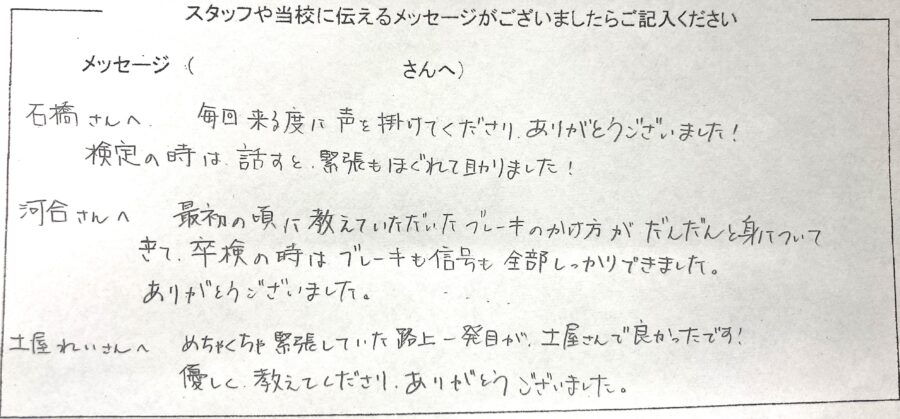 スタッフや当校に伝えるメッセージがございましたらご記入ください
メッセージ ( さんへ)
石橋さんへ. 毎回来る度に声を掛けてくださり、ありがとうございました!
検定の時は、話すと、緊張もほぐれて助りました!
河合さんへ 最初の頃に教えていただいたブレーキのかけ方がだんだんと身について
きて、卒検の時はブレーキも信号も全部しっかりできました。
ありがとうございました。
土屋れいさんへ めちゃくちゃ緊張していた路上一発目が、土屋さんで良かったです!
優しく、教えてくださり、ありがとうございました。